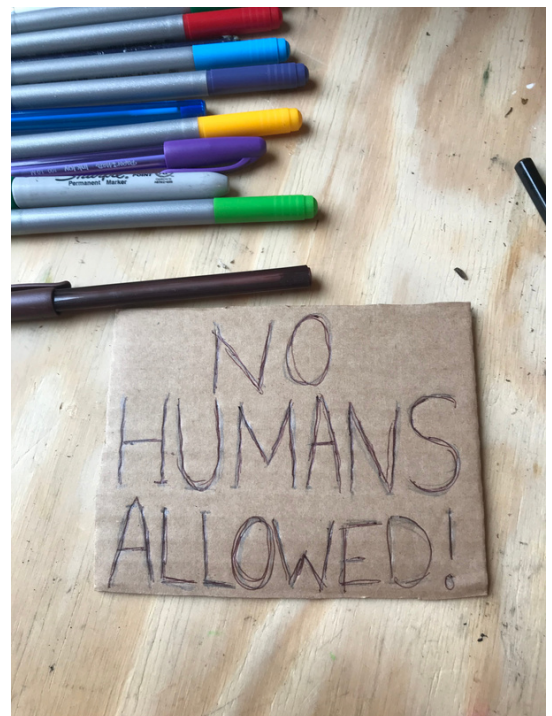 Sharpie
Permanent Marker
NO
HUMANS
ALLOWED!